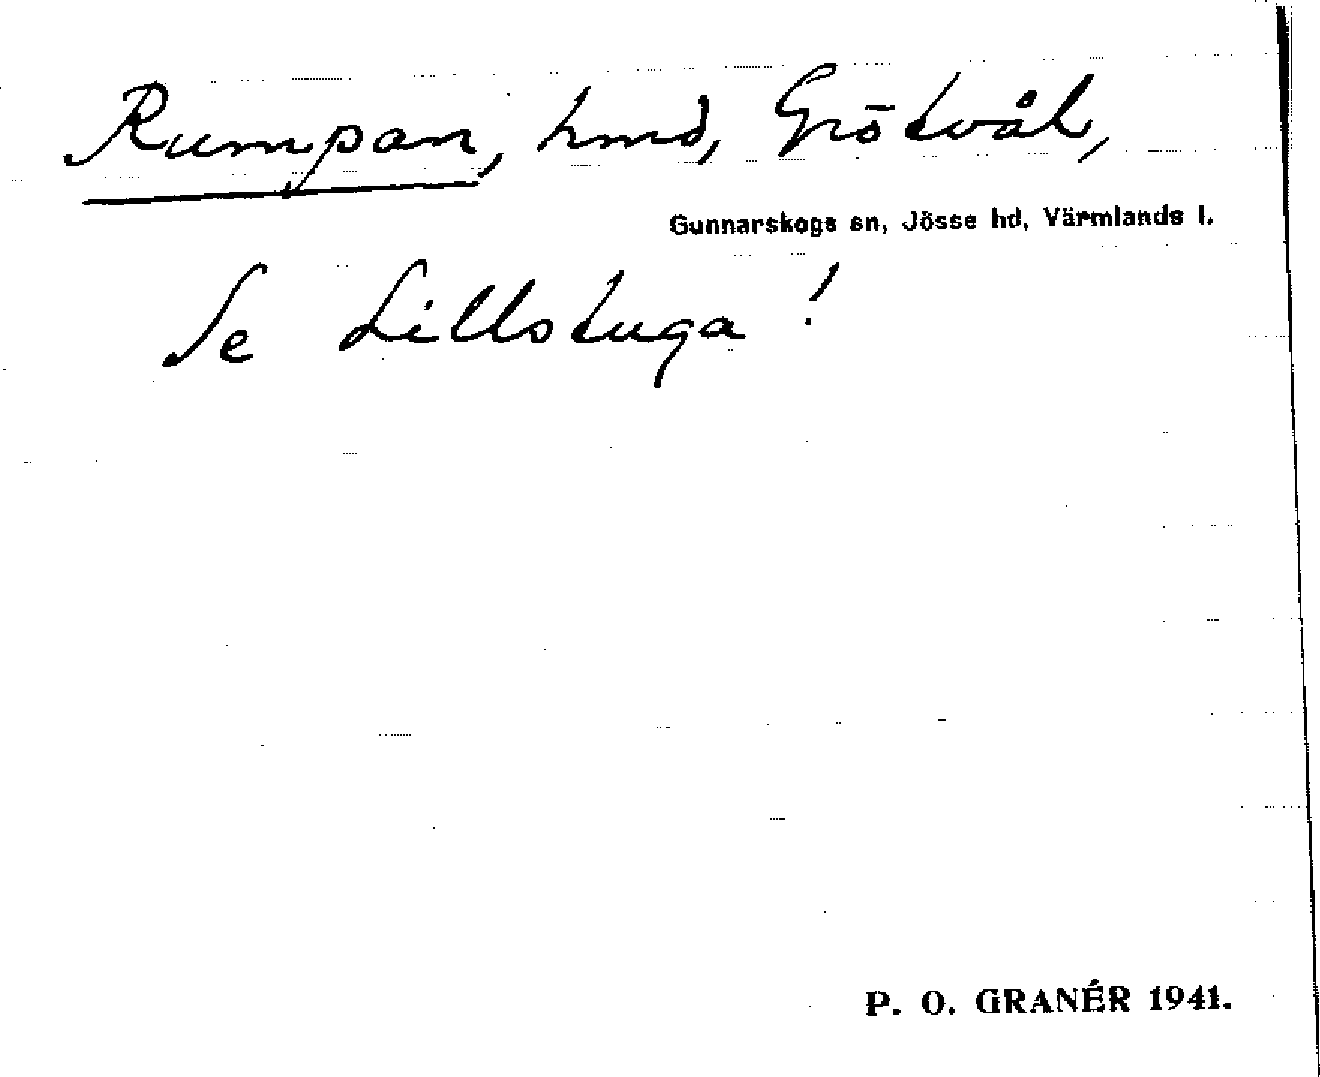 Rumpan, hmd, Grötvål,
Gunnarskogs sn, Jösse hd, Värmlands l.
Se Lillstuga!
P. O. GRANÉR 1941.